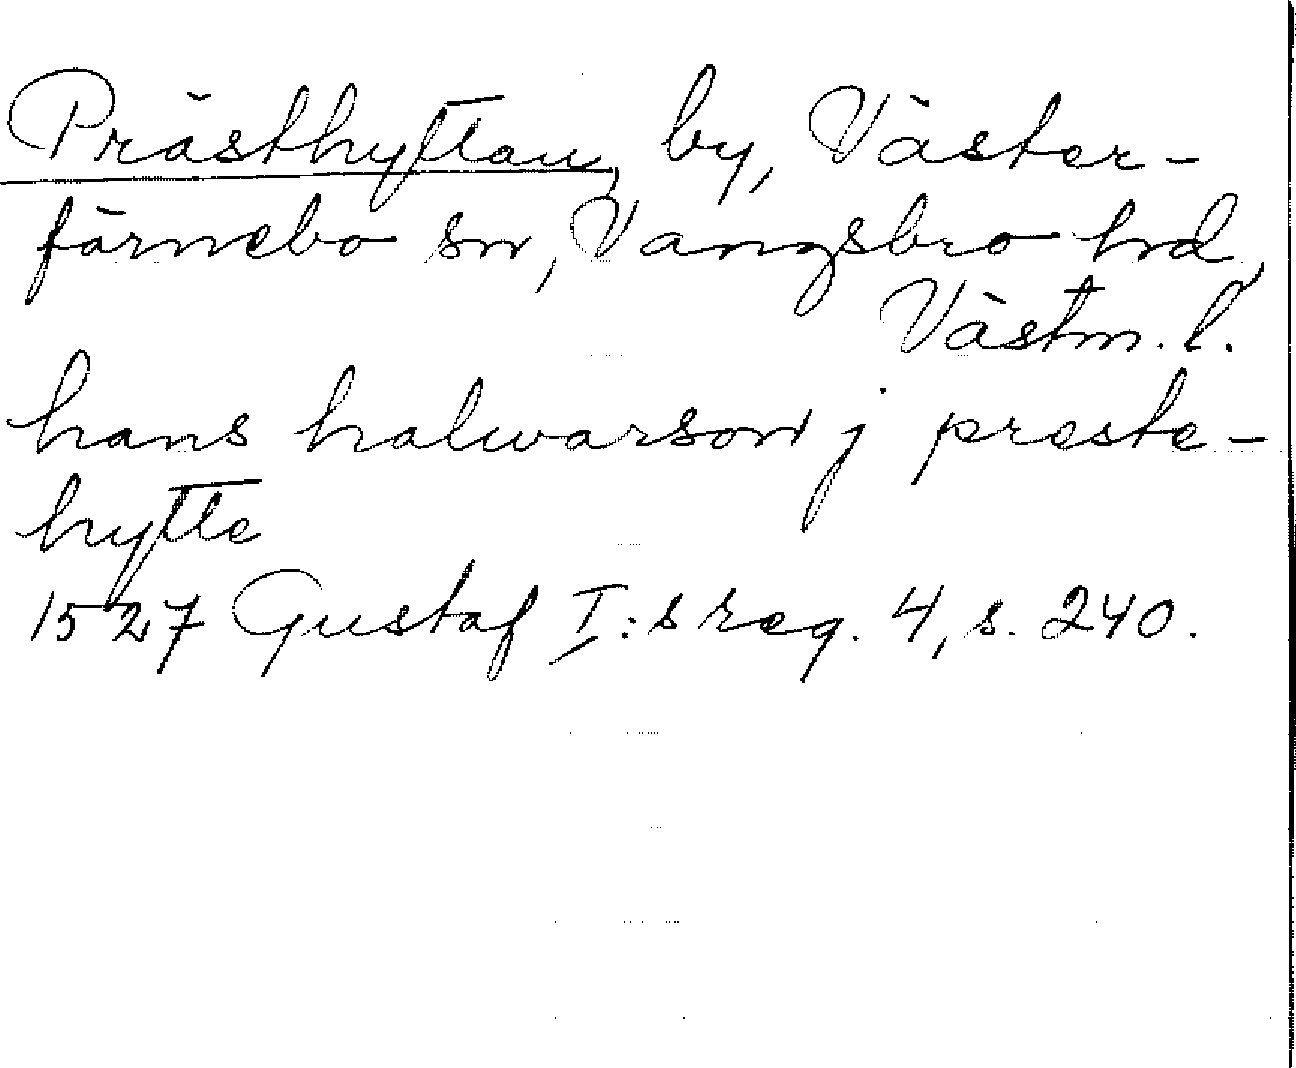 Prästhyttan, by, Väster-
färnebo sn, Vangsbro hd,
Västm. l.
hans halwarson j preste-
hytte
1527 Gustaf I:s reg. 4, s. 240.